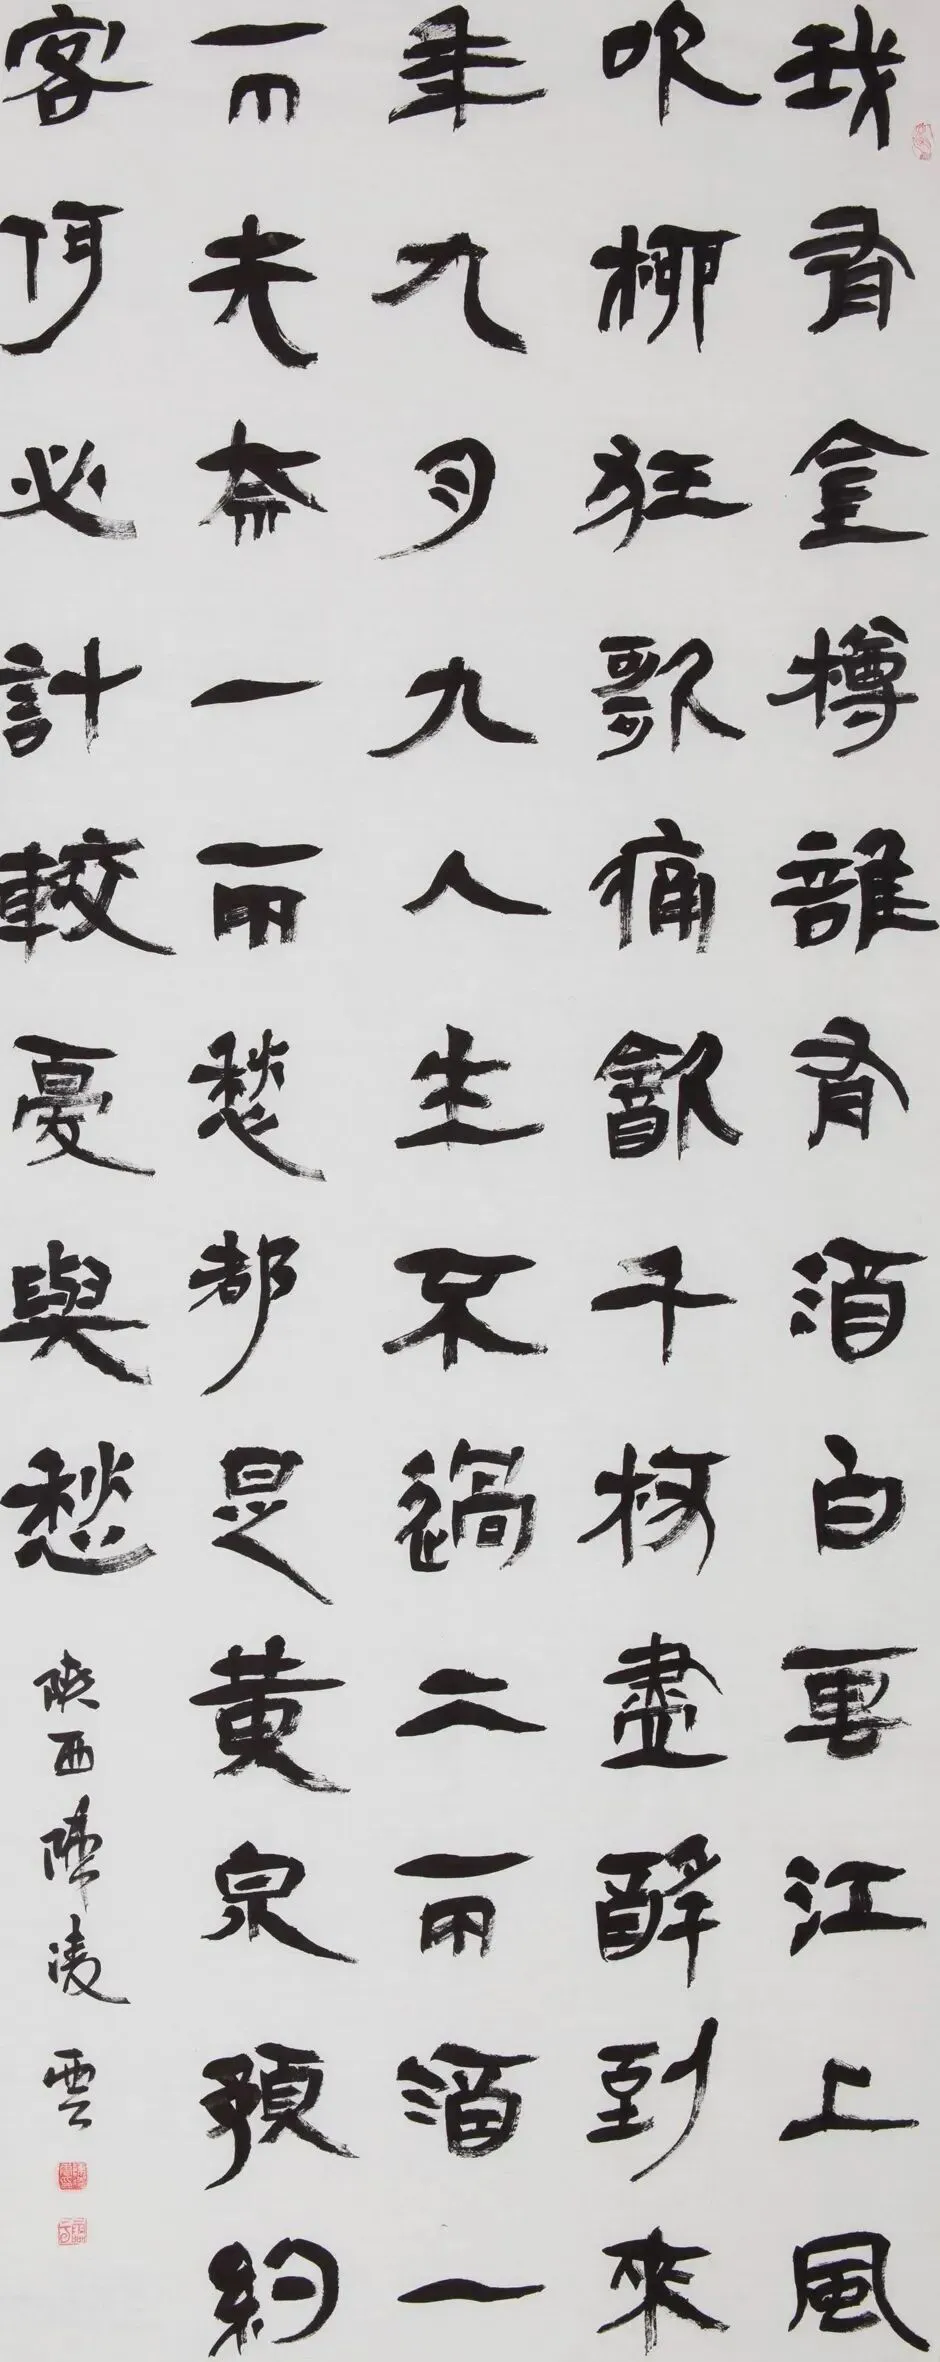 我有金樽誰有酒白雲江上風
吹柳狂歌痛飲千杯盡醉到來
年九月九人生不過二兩酒一
兩无奈一兩愁都是黃泉預約
客何必計較憂與愁
陝西陳凌雲